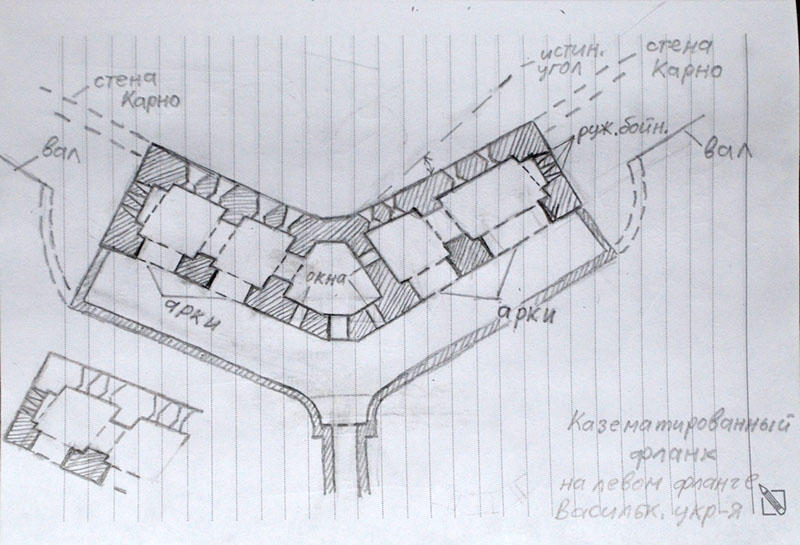 стена
Карно
истин.
угол
стена
Карно
руж. бойн.
вал
вал
окна
арки
арки
Казематированный
фланк
на левом фланге
Васильк. укр-я